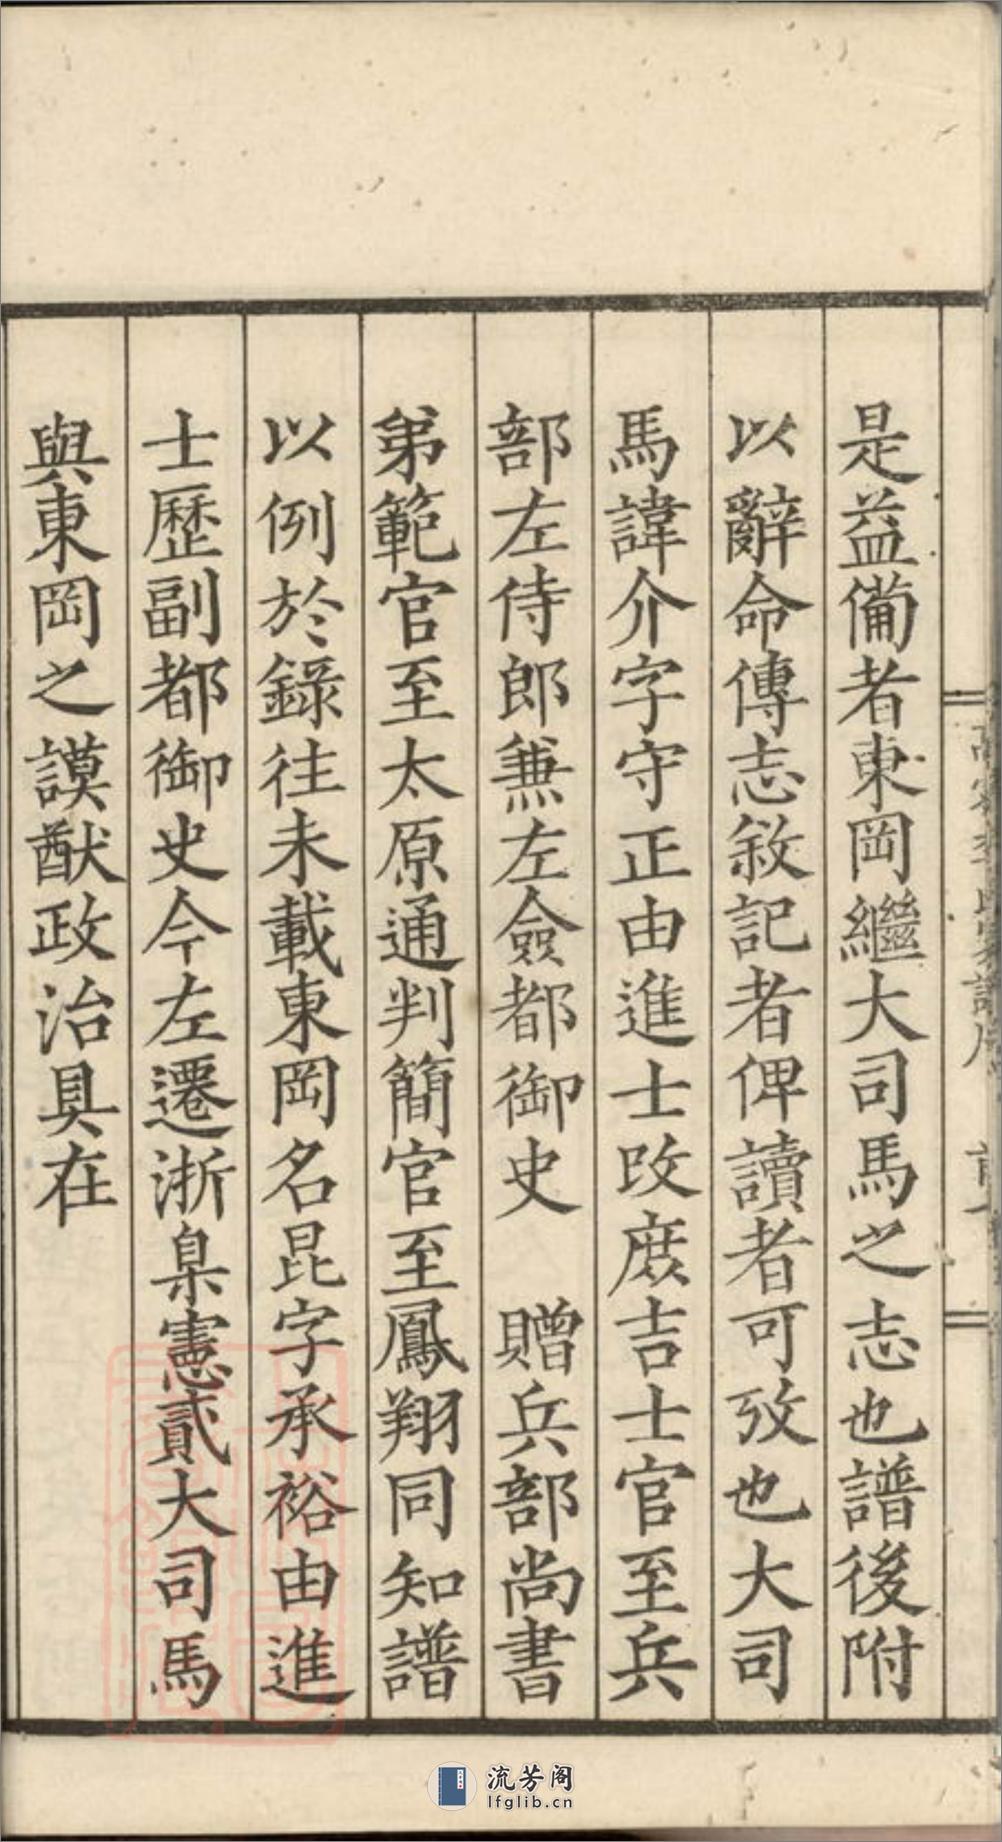 是益備者東岡繼大司馬之志也譜後附
以辭命傳志敘記者俾讀者可攷也大司
馬諱介字守正由進士改庶吉士官至兵
部左侍郎兼左僉都御史 贈兵部尚書
弟範官至太原通判簡官至鳳翔同知譜
以例於錄徃未載東岡名昆字承裕由進
士歷副都御史今左遷浙臬憲貳大司馬
與東岡之謨猷政治具在
流芳阁
lfglib.cn